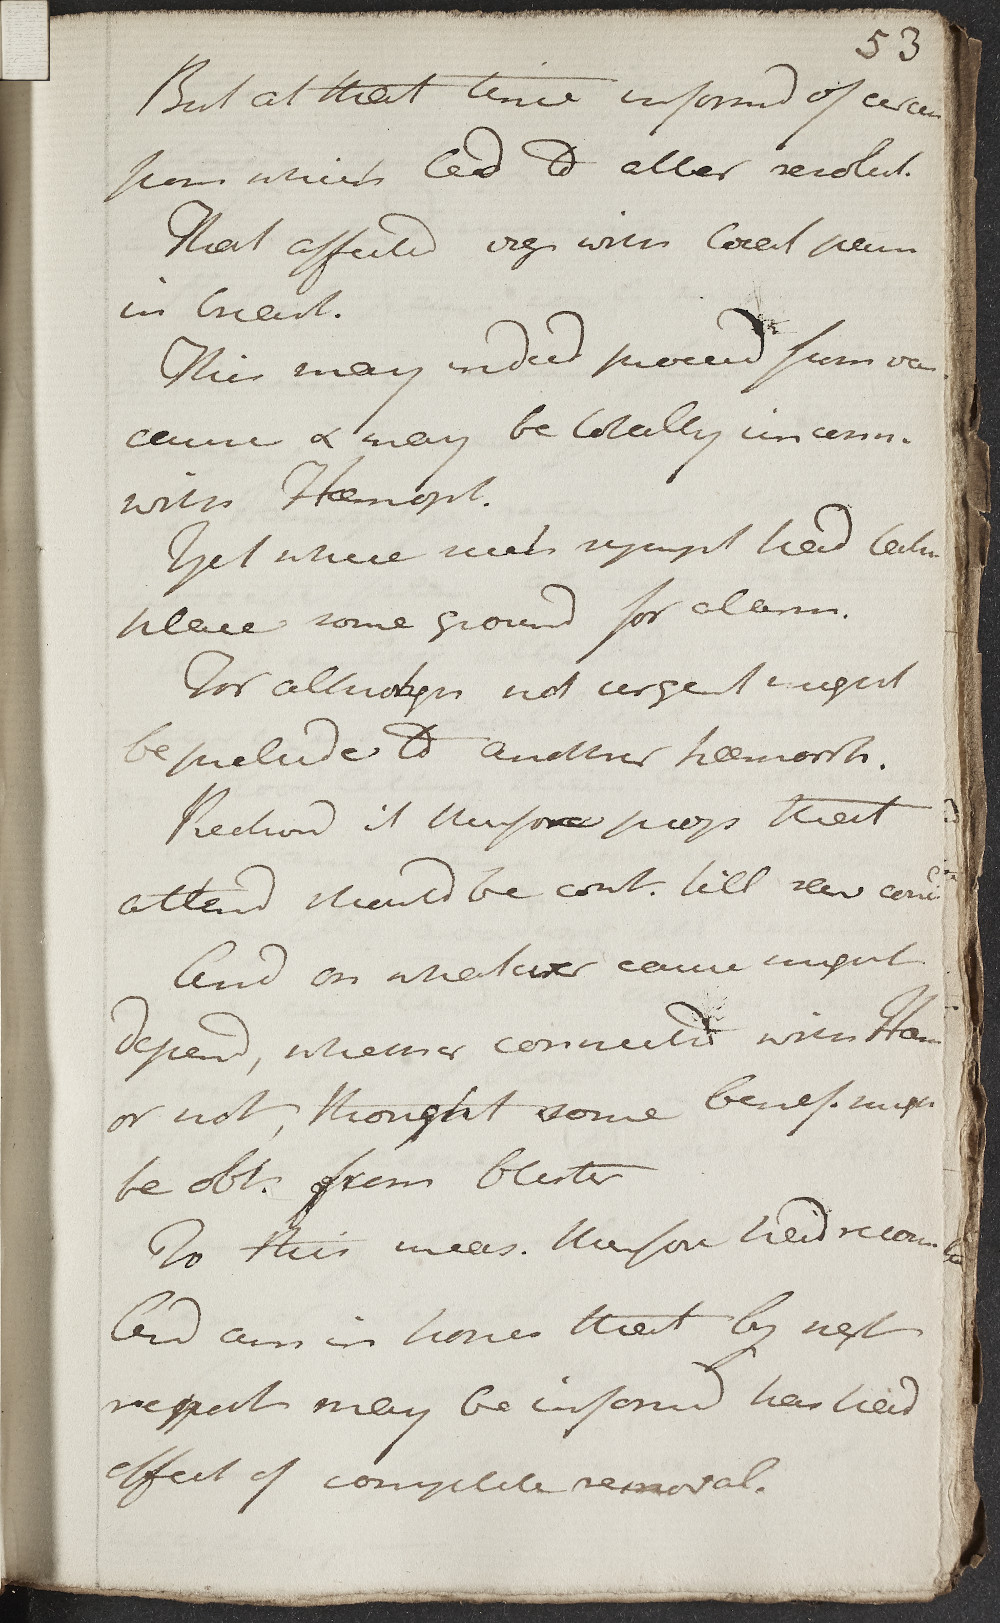 53
But at that time informd of circum
from which led to alter resolut.
That affected vigs with local pain
in breast.
This may indeed proceed from var.
cause & may be totally unconn.
with Hemopt.
Yet where such sympt had taken
place some ground for alarm.
For although not urgent might
be prelude to another hæmorrh.
Reckond it therefore prop that
attend should be cont. till new
And on whatever cause might
depend, whether connected with Hæm
or not, thought some benef. might
be obt. from blister
To this meas. therefore had recom
And am in hopes that by next
report may be informd has had
effect of complete removal.